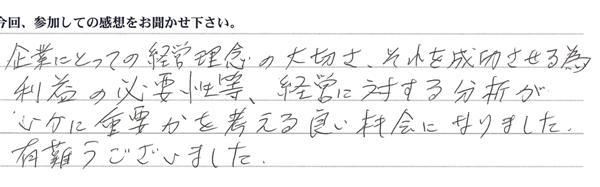 今回、参加しての感想をお聞かせ下さい。
企業にとっての経営理念の大切さ、それを成功させる為
利益の必要性等、経営に対する分析が
いかに重要かを考える良い機会になりました.
有難うございました.